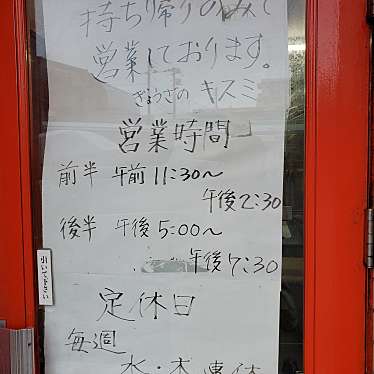 持ち帰りのみで
営業しております。
ぎょうざの キスミ
営業時間
前半 午前11:30〜
午後2:30
後半 午後5:00〜
午後7:30
定休日
毎週
水・木連休
引いて下さい